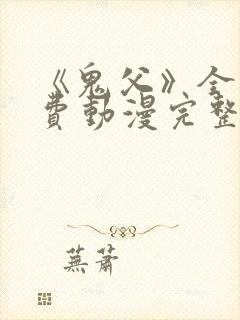 《鬼父》全
費動漫完整
蕪蕭